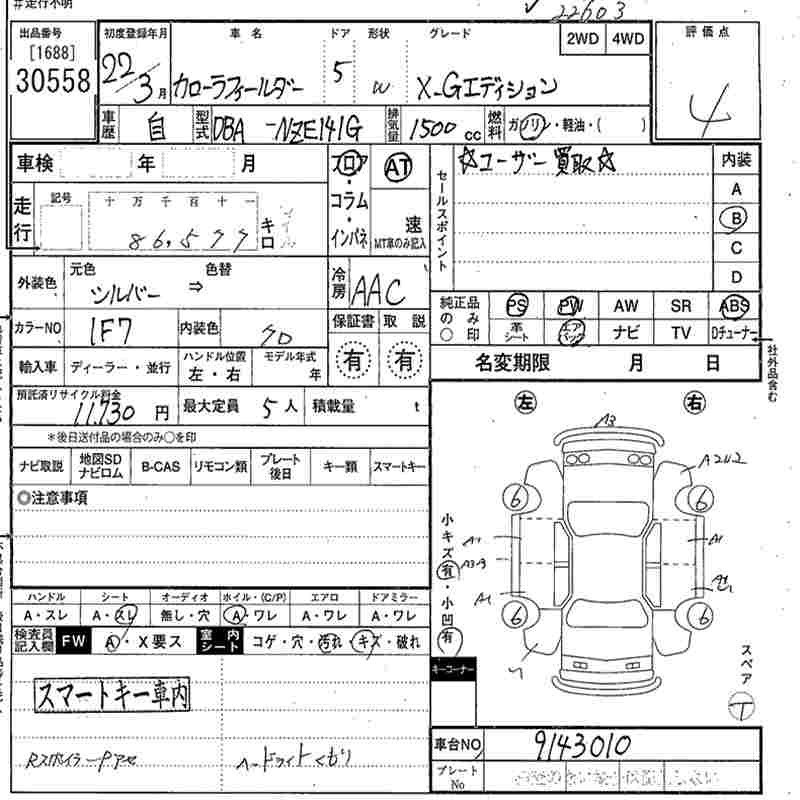 #走行不明
22603
出品番号
[1688]
30558
初度登録年月 車名 ドア 形状 グレード 2WD 4WD 評価点
22/3月 カローラフィールダー 5 W X-Gエディション 4
車歴 自 型式 DBA-NZE141G 排気量 1500cc 燃料 ガソリン・軽油・( )
車検 年 月 フロア・コラム・インパネ AT 速 MT車のみ記入
セールスポイント ☆ユーザー買取☆
内装
A
B
C
D
走行 記号 十万千百十一 86,577 キロ マイル
外装色 元色 シルバー ⇒ 色替
冷房 AAC
カラーNO 1F7 内装色 70
保証書 有 取説 有
純正品のみ○印 PS PW AW SR ABS
革シート エアバック ナビ TV Dチューナー
社外品含む
名変期限 月 日
輸入車 ディーラー・並行 ハンドル位置 左・右 モデル年式 年
預託済リサイクル料金 11,730円 最大定員 5人 積載量 t
*後日送付品の場合のみ○を印
ナビ取説 地図SDナビロム B-CAS リモコン類 プレート後日 キー類 スマートキー
◎注意事項
左 右
A3
A2U2
6 6
A1 A1
A3
A1
6 6
小キズ有・小凹有
スペア
T
キーコーナー
ハンドル シート オーディオ ホイル・(C/P) エアロ ドアミラー
A・スレ A・スレ 無し・穴 A・ワレ A・ワレ A・ワレ
検査員記入欄 FW A・X要ス 室内シート コゲ・穴・汚れ・キズ・破れ
スマートキー車内
RスポイラーPアセ
ヘッドライトくもり
車台NO 9143010
プレートNo